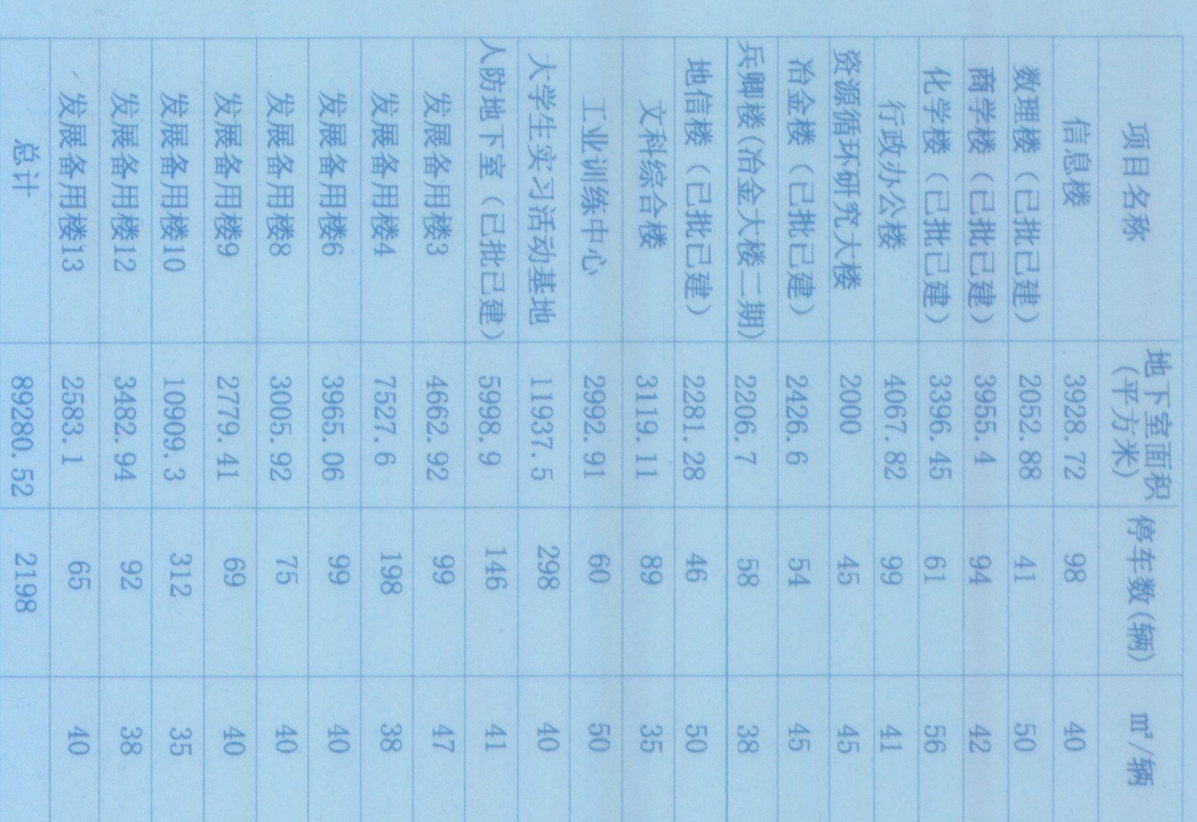 项目名称 地下室面积(平方米) 停车数(辆) ㎡/辆
信息楼 3928.72 98 40
数理楼（已批已建） 2052.88 41 50
商学楼（已批已建） 3955.4 94 42
化学楼（已批已建） 3396.45 61 56
行政办公楼 4067.82 99 41
资源循环研究大楼 2000 45 45
冶金楼（已批已建） 2426.6 54 45
兵卿楼(冶金大楼二期) 2206.7 58 38
地信楼（已批已建） 2281.28 46 50
文科综合楼 3119.11 89 35
工业训练中心 2992.91 60 50
大学生实习活动基地 11937.5 298 40
人防地下室（已批已建） 5998.9 146 41
发展备用楼3 4662.92 99 47
发展备用楼4 7527.6 198 38
发展备用楼6 3965.06 99 40
发展备用楼8 3005.92 75 40
发展备用楼9 2779.41 69 40
发展备用楼10 10909.3 312 35
发展备用楼12 3482.94 92 38
发展备用楼13 2583.1 65 40
总计 89280.52 2198